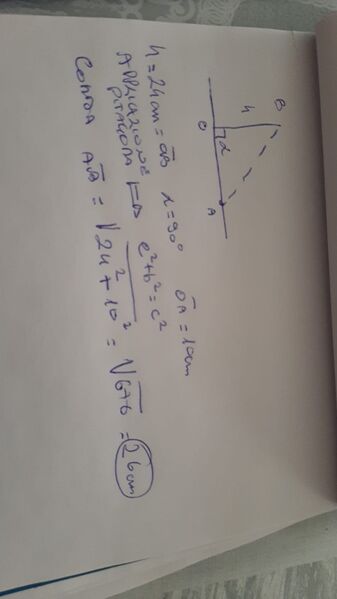 B
h
α
O
A
h = 24 cm = OB α = 90° OA = 10 cm
APPLICAZIONE
PITAGORA → a²+b²=c²
CORDA AB = √24² + 10² = √676 = 26 cm